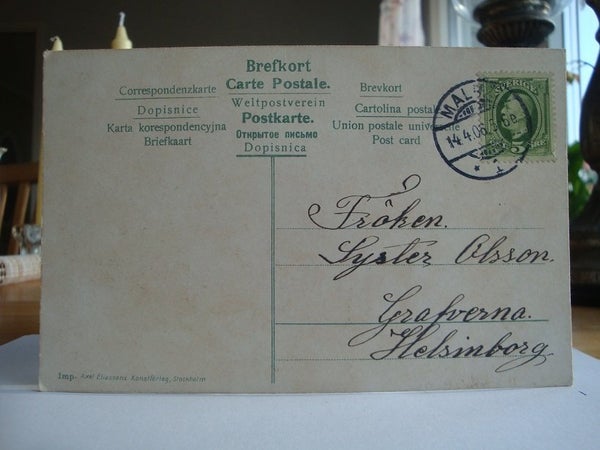 Brefkort
Carte Postale.
Correspondenzkarte
Weltpostverein
Brevkort
Dopisnice
Postkarte.
Cartolina postale
Karta korespondencyjna
Открытое письмо
Union postale universelle
Briefkaart
Dopisnica
Post card
SVERIGE
14.4.06
Fröken.
Syster Olsson.
Grafverna.
Helsinborg
Imp. Axel Eliassons Konstförlag, Stockholm